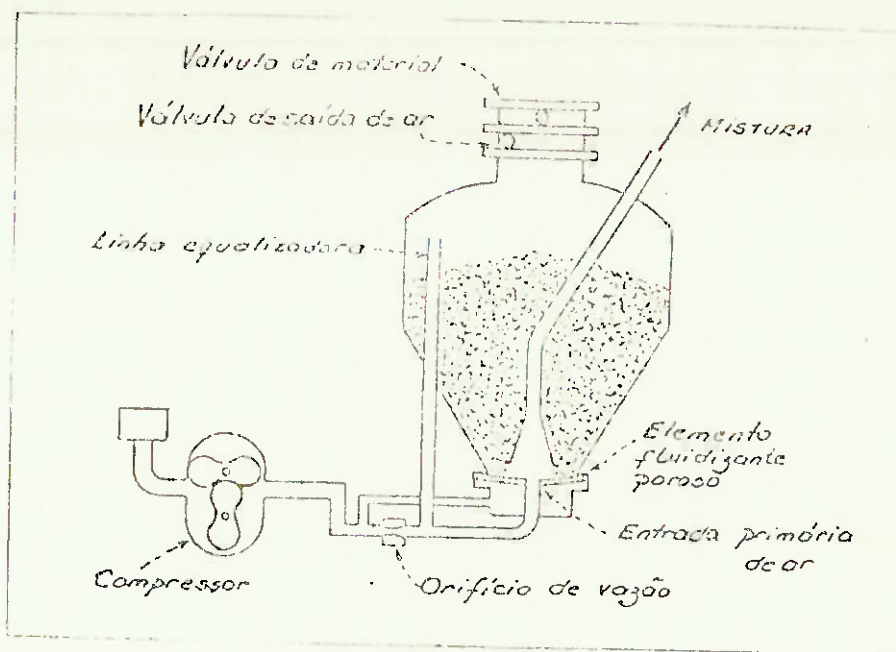 Válvula de material
Válvula de saída de ar
MISTURA
Linha equalizadora
Elemento
fluidizante
poroso
Entrada primária
de ar
Compressor
Orifício de vazão